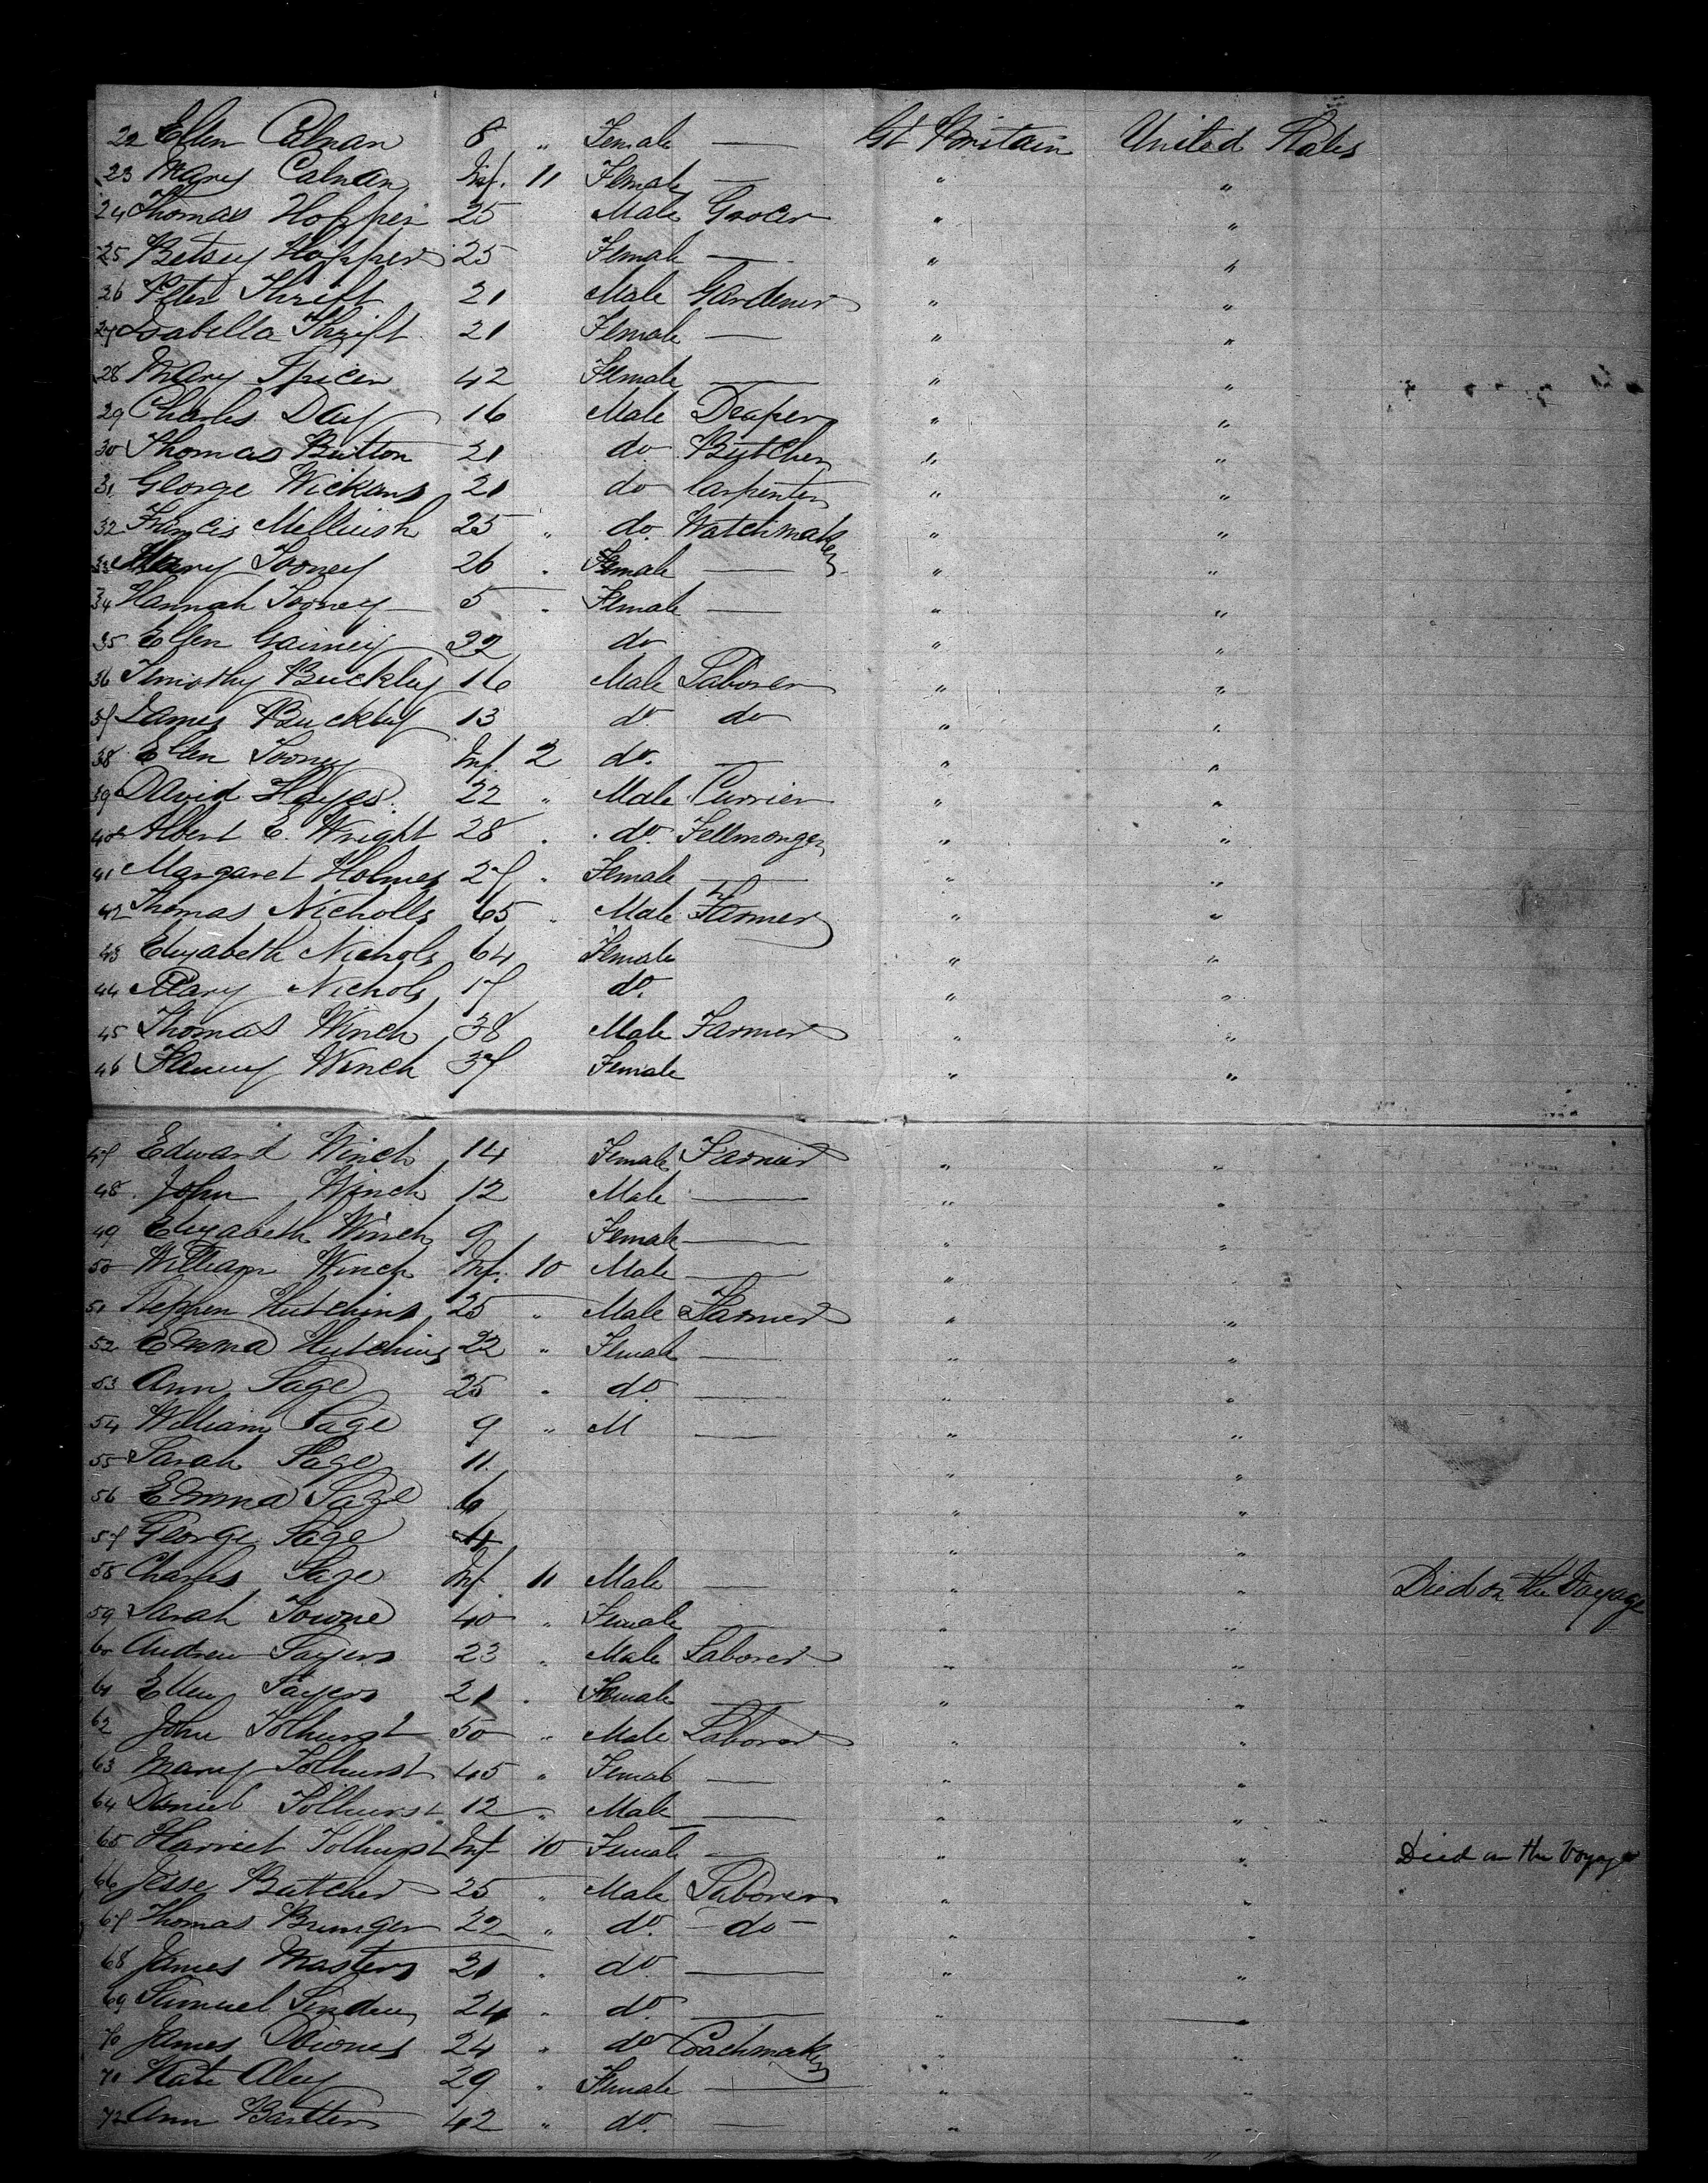 22 Ellen Calnan 8 " Female — Gt Britain United States
23 Mary Calnan Inf. 11 Female — " "
24 Thomas Hopper 25 Male Grocer " "
25 Betsy Hopper 25 Female — " "
26 Peter Thrift 21 Male Gardener " "
27 Isabella Thrift 21 Female — " "
28 Mary Spicer 42 Female — " "
29 Charles Day 16 Male Draper " "
30 Thomas Button 21 do Butcher " "
31 George Wickens 21 do Carpenter " "
32 Francis Melluish 25 " do. Watchmaker " "
33 Mary Tooney 26 " Female — " "
34 Hannah Tooney 5 " Female — " "
35 Ellen Gainey 32 do " "
36 Timothy Buckley 16 Male Laborer " "
37 James Buckley 13 do. do " "
38 Ellen Tooney Inf. 2 do. — " "
39 David Hayes 22 " Male Currier " "
40 Albert E. Wright 28 " do. Fellmonger " "
41 Margaret Holmes 27 " Female — " "
42 Thomas Nicholls 65 " Male Farmer " "
43 Elizabeth Nichols 64 Female " "
44 Mary Nichols 17 do. " "
45 Thomas Winch 38 Male Farmer " "
46 Fanny Winch 37 Female " "
47 Edward Winch 14 Female Farmer " "
48 John Winch 12 Male — " "
49 Elizabeth Winch 9 Female — " "
50 William Winch Inf. 10 Male — " "
51 Stephen Hutchins 25 " Male Farmer " "
52 Emma Hutchins 22 " Female — " "
53 Ann Sage 25 " do. — " "
54 William Sage 9 " M — " "
55 Sarah Sage 11 " "
56 Emma Sage 6 " "
57 George Sage 4 " "
58 Charles Sage Inf. 11 Male — " " Died on the Voyage
59 Sarah Towne 40 " Female — " "
60 Andrew Sayers 23 " Male Laborer " "
61 Ellen Sayers 21 " Female — " "
62 John Tolhurst 50 " Male Laborer " "
63 Mary Tolhurst 45 " Female — " "
64 Daniel Tolhurst 12 " Male — " "
65 Harriet Tolhurst Inf 10 Female — " " Died on the Voyage
66 Jesse Butcher 25 " Male Laborer " "
67 Thomas Brunger 22 " do. - do - " "
68 James Masters 21 " do. — " "
69 Samuel 24 " do. — " —
70 James 24 " do Coachmaker " "
71 Kate 29 " Female — " "
72 Ann 42 " do. — " "